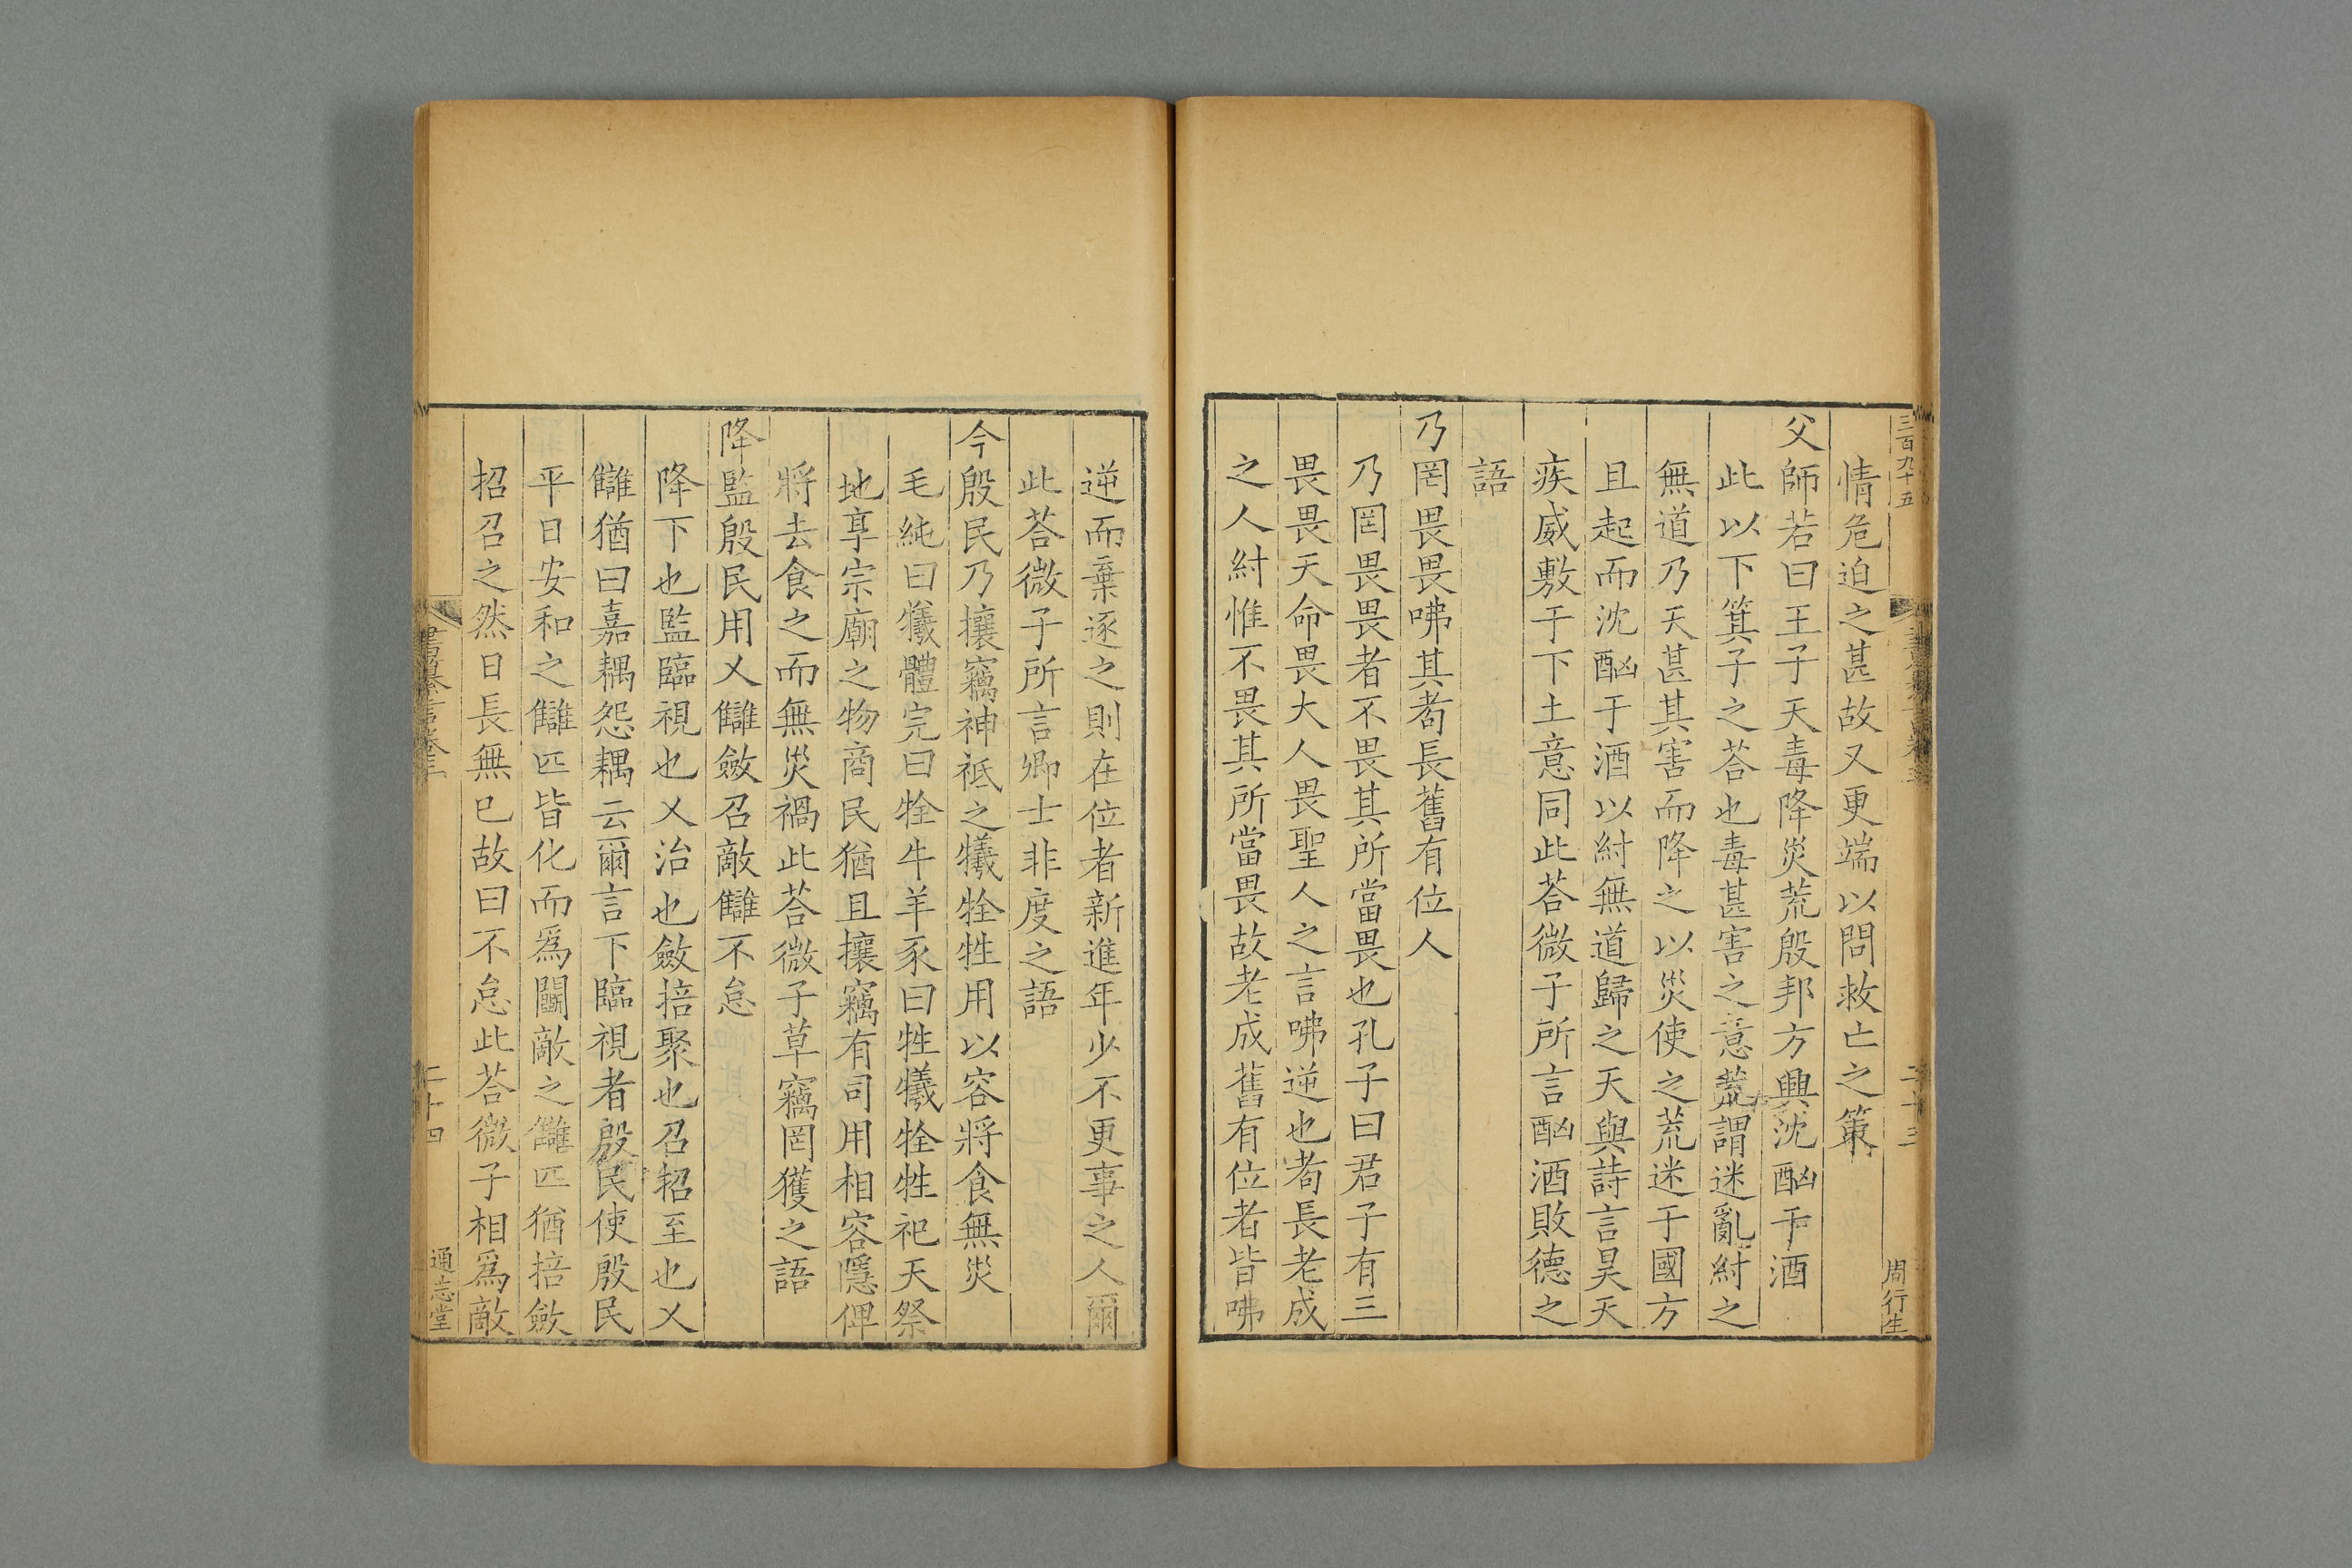 三百九十五
二十三
周行生
情危迫之甚故又更端以問救亡之策
父師若曰王子天毒降災荒殷邦方興沈酗于酒
此以下箕子之荅也毒甚害之意荒謂迷亂紂之
無道乃天甚其害而降之以災使之荒迷于國方
且起而沈酗于酒以紂無道歸之天與詩言昊天
疾威敷于下土意同此荅微子所言酗酒敗德之
語
乃罔畏畏咈其耉長舊有位人
乃罔畏畏者不畏其所當畏也孔子曰君子有三
畏畏天命畏大人畏聖人之言咈逆也耉長老成
之人紂惟不畏其所當畏故老成舊有位者皆咈
逆而棄逐之則在位者新進年少不更事之人爾
此荅微子所言卿士非度之語
今殷民乃攘竊神祗之犧牷牲用以容將食無災
毛純曰犧體完曰牷牛羊豕曰牲犧牷牲祀天祭
地享宗廟之物商民猶且攘竊有司用相容隱俾
將去食之而無災禍此荅微子草竊罔獲之語
降監殷民用乂讎斂召敵讎不怠
降下也監臨視也乂治也斂掊聚也召招至也乂
讎猶曰嘉耦怨耦云爾言下臨視者殷民使殷民
平日安和之讎匹皆化而爲鬬敵之讎匹猶掊斂
招召之然日長無已故曰不怠此荅微子相爲敵
書纂言卷三
二十四
通志堂